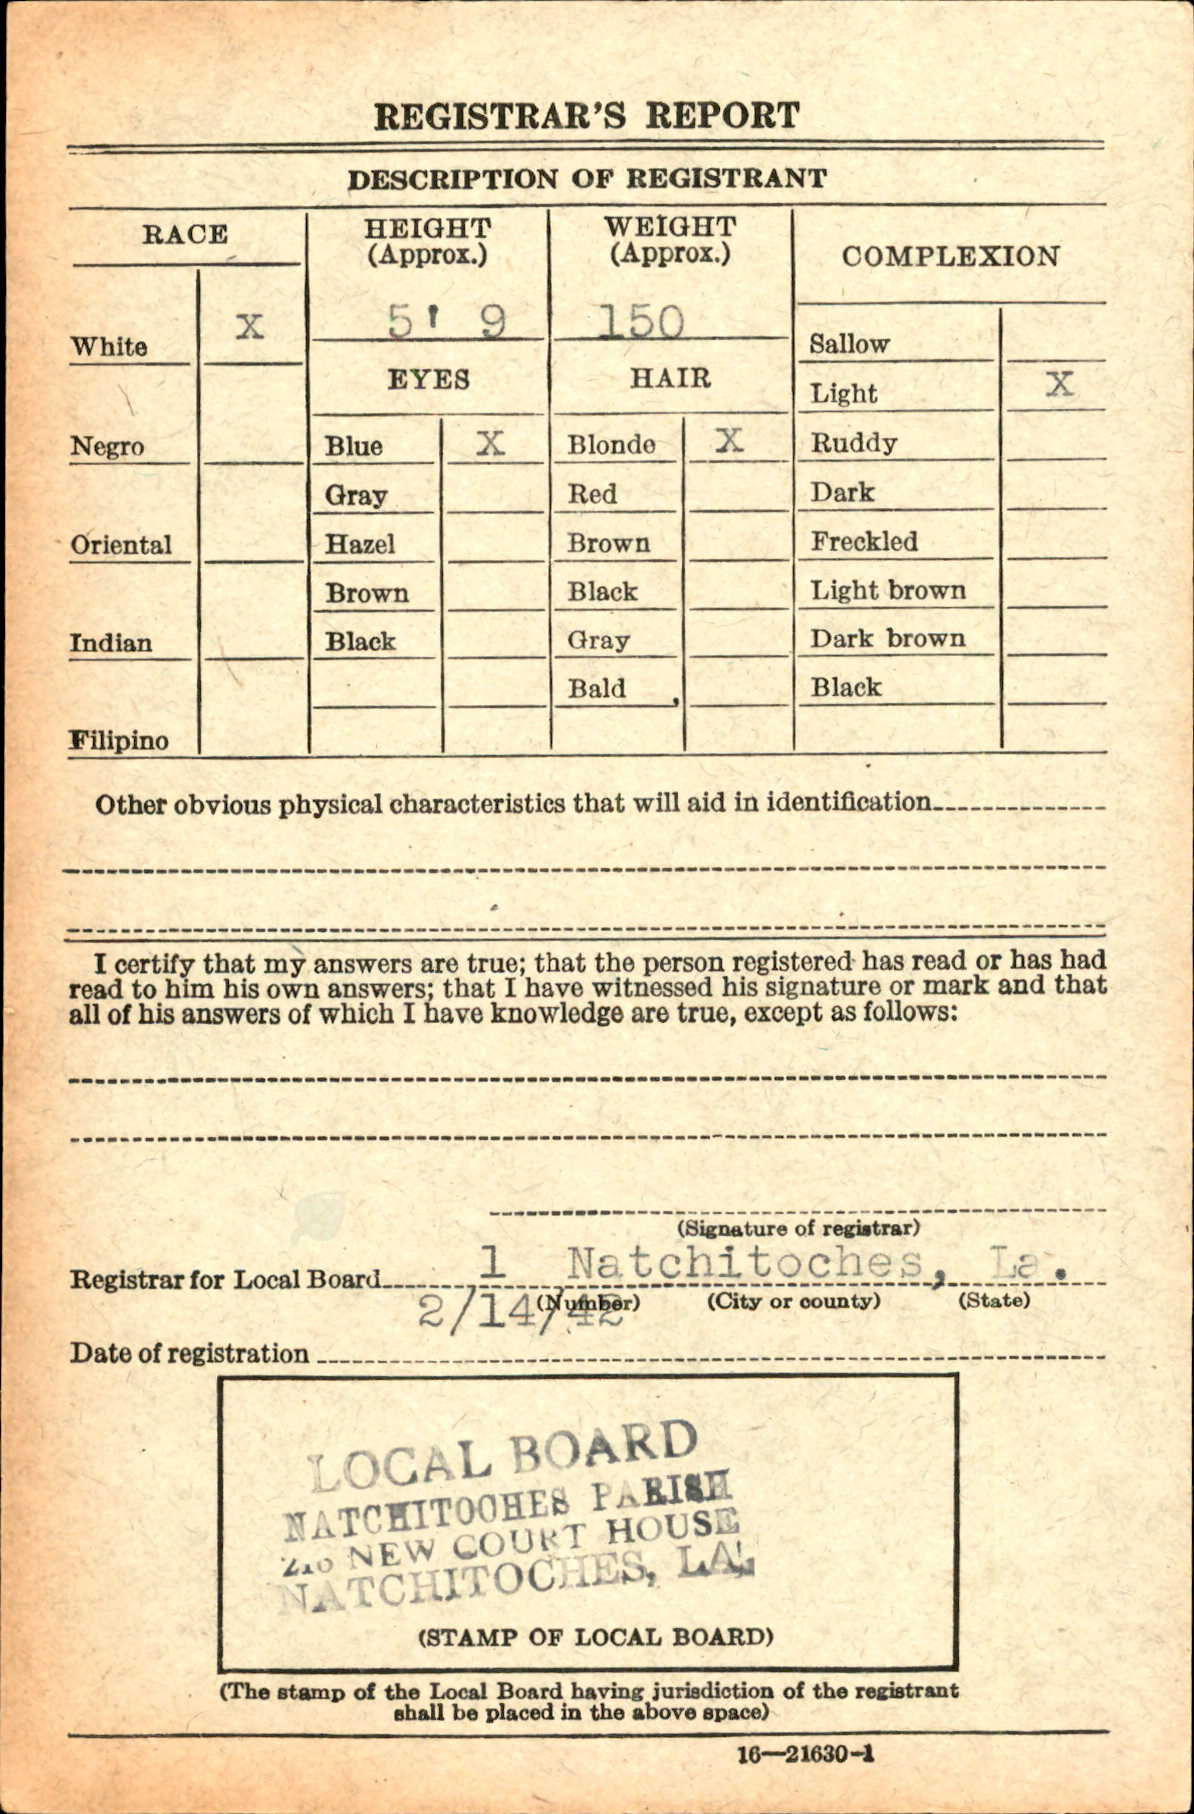 REGISTRAR'S REPORT
DESCRIPTION OF REGISTRANT
RACE
HEIGHT
(Approx.)
WEIGHT
(Approx.)
COMPLEXION
5' 9
150
White X
EYES
HAIR
Sallow
Light X
Negro
Blue X
Blonde X
Ruddy
Gray
Red
Dark
Oriental
Hazel
Brown
Freckled
Brown
Black
Light brown
Indian
Black
Gray
Dark brown
Bald
Black
Filipino
Other obvious physical characteristics that will aid in identification
I certify that my answers are true; that the person registered has read or has had
read to him his own answers; that I have witnessed his signature or mark and that
all of his answers of which I have knowledge are true, except as follows:
(Signature of registrar)
Registrar for Local Board 1 Natchitoches, La.
(Number) (City or county) (State)
2/14/42
Date of registration
LOCAL BOARD
NATCHITOCHES PARISH
NEW COURT HOUSE
NATCHITOCHES, LA.
(STAMP OF LOCAL BOARD)
(The stamp of the Local Board having jurisdiction of the registrant
shall be placed in the above space)
16—21630-1